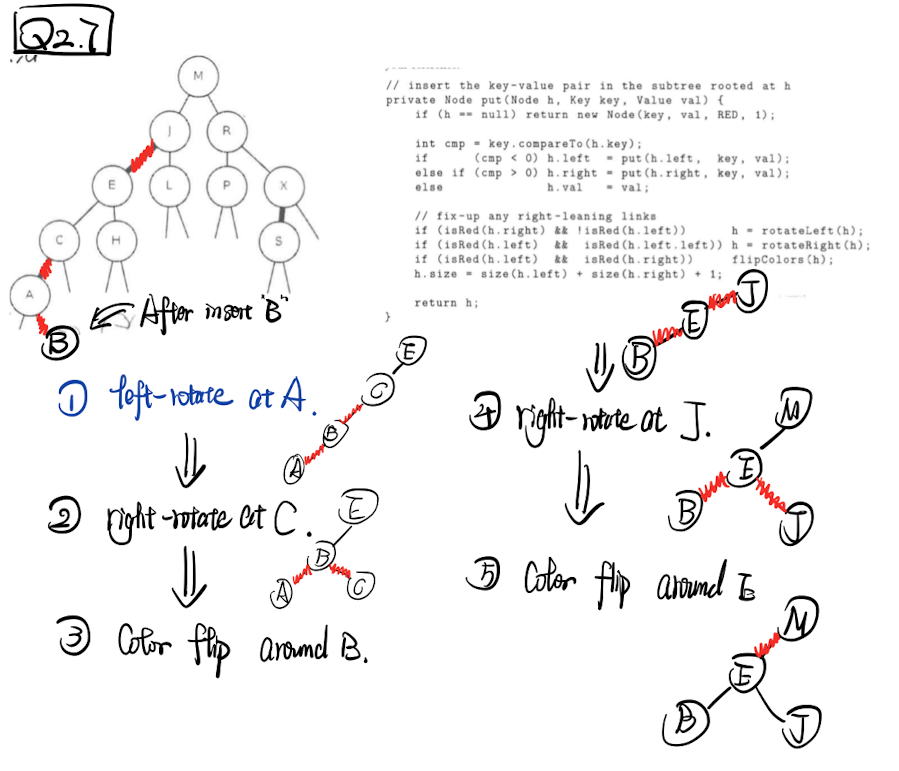 Q2.7
M
J
R
E
L
P
X
C
H
S
A
B
After insert "B"
// insert the key-value pair in the subtree rooted at h
private Node put(Node h, Key key, Value val) {
if (h == null) return new Node(key, val, RED, 1);
int cmp = key.compareTo(h.key);
if (cmp < 0) h.left = put(h.left, key, val);
else if (cmp > 0) h.right = put(h.right, key, val);
else h.val = val;
// fix-up any right-leaning links
if (isRed(h.right) && !isRed(h.left)) h = rotateLeft(h);
if (isRed(h.left) && isRed(h.left.left)) h = rotateRight(h);
if (isRed(h.left) && isRed(h.right)) flipColors(h);
h.size = size(h.left) + size(h.right) + 1;
return h;
}
① left-rotate at A.
E
C
B
A
② right-rotate at C.
E
B
A
C
③ Color flip around B.
J
E
B
④ right-rotate at J.
M
E
B
J
⑤ Color flip around E
M
E
B
J